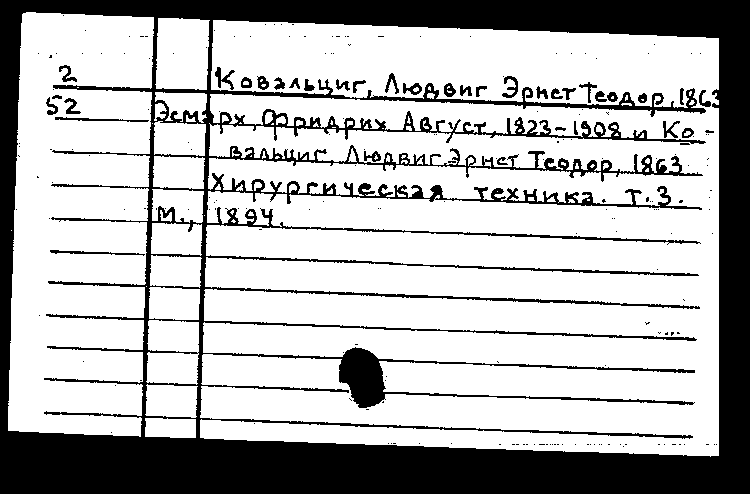 2 Ковальциг, Людвиг Эрнст Теодор, 1863
52 Эсмарх, Фридрих Август, 1823-1908 и Ко-
вальциг, Людвиг Эрнст Теодор, 1863
Хирургическая техника. т.3.
М., 1894.